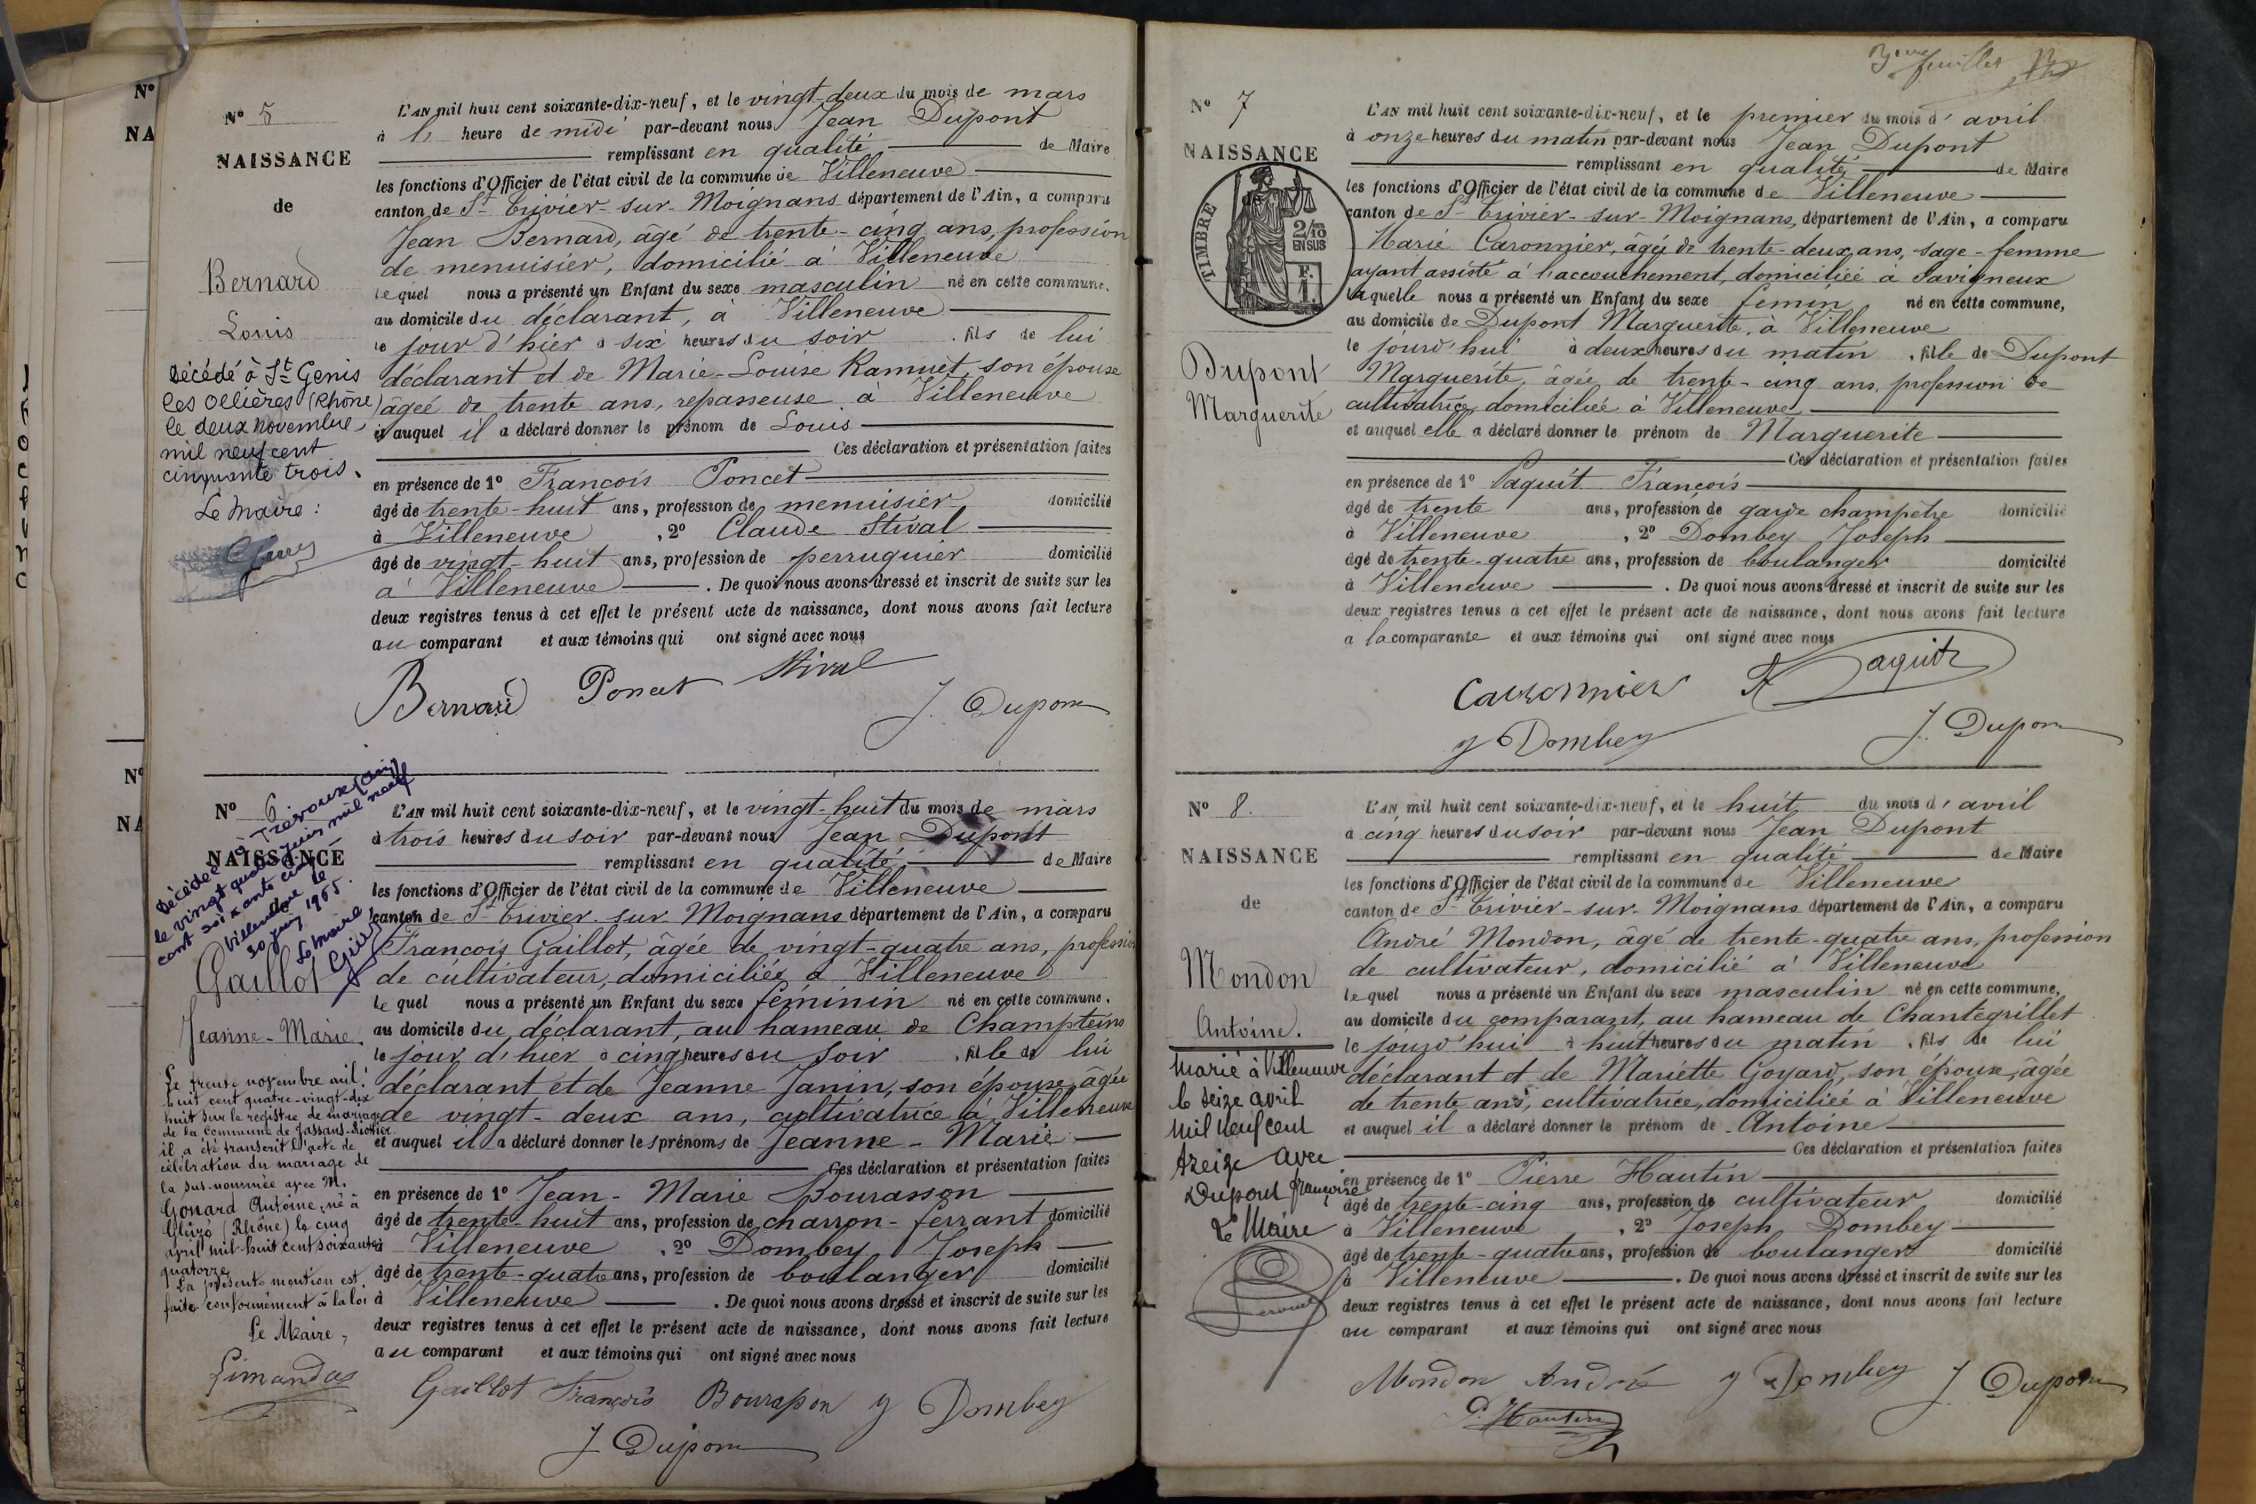 N°
NA
N°
NA
N° 5
NAISSANCE
de
Bernard
Louis
Décédé à St Genis
les Ollières (Rhône)
le deux novembre
mil neuf cent
cinquante trois.
Le Maire :
L'AN mil huit cent soixante-dix-neuf, et le vingt-deux du mois de mars
à heure de midi par-devant nous Jean Dupont
remplissant en qualité de Maire
les fonctions d'Officier de l'état civil de la commune de Villeneuve
canton de St Trivier-sur-Moignans département de l'Ain, a comparu
Jean Bernard, âgé de trente-cinq ans, profession
de menuisier, domicilié à Villeneuve
lequel nous a présenté un Enfant du sexe masculin né en cette commune,
au domicile du déclarant, à Villeneuve
le jour d'hier à six heures du soir, fils de lui
déclarant et de Marie-Louise Ramuet, son épouse
âgée de trente ans, repasseuse à Villeneuve
et auquel il a déclaré donner le prénom de Louis
Ces déclaration et présentation faites
en présence de 1° François Poncet
âgé de trente-huit ans, profession de menuisier domicilié
à Villeneuve, 2° Claude Stival
âgé de vingt-huit ans, profession de perruquier domicilié
à Villeneuve. De quoi nous avons dressé et inscrit de suite sur les
deux registres tenus à cet effet le présent acte de naissance, dont nous avons fait lecture
au comparant et aux témoins qui ont signé avec nous
Bernard Poncet Stival
J. Dupont
N° 6
NAISSANCE
Décédée à Trévoux (Ain)
le vingt quatre juin mil neuf
cent soixante cinq.
Villeneuve le
30 juin 1965.
Le Maire
Gaillot
Jeanne-Marie.
Le trente novembre mil
huit cent quatre-vingt-dix
huit sur le registre de mariage
de la commune de Jassans-Riottier
il a été transcrit l'acte de
célébration du mariage de
la sus-nommée avec M.
Gonard Antoine, né à
Gleizé (Rhône) le cinq
avril mil-huit cent soixante
quatorze.
La présente mention est
faite conformément à la loi
Le Maire,
Limandas
L'AN mil huit cent soixante-dix-neuf, et le vingt-huit du mois de mars
à trois heures du soir par-devant nous Jean Dupont
remplissant en qualité de Maire
les fonctions d'Officier de l'état civil de la commune de Villeneuve
canton de St Trivier-sur Moignans département de l'Ain, a comparu
François Gaillot, âgée de vingt-quatre ans, profession
de cultivateur, domiciliée à Villeneuve
le quel nous a présenté un Enfant du sexe féminin né en cette commune,
au domicile du déclarant, au hameau de Champteins
le jour d'hier à cinq heures du soir, fille de lui
déclarant et de Jeanne Janin, son épouse, âgée
de vingt-deux ans, cultivatrice à Villeneuve
et auquel il a déclaré donner les prénoms de Jeanne-Marie
Ces déclaration et présentation faites
en présence de 1° Jean-Marie Bourasson
âgé de trente-huit ans, profession de charron-ferrant domicilié
à Villeneuve, 2° Dombey Joseph
âgé de trente-quatre ans, profession de boulanger domicilié
à Villeneuve. De quoi nous avons dressé et inscrit de suite sur les
deux registres tenus à cet effet le présent acte de naissance, dont nous avons fait lecture
au comparant et aux témoins qui ont signé avec nous
Gaillot François Bourasson J Dombey
J Dupont
3ème feuillet
N° 7
NAISSANCE
TIMBRE
2/10
EN SUS
F.
1.
Dupont
Marguerite
L'AN mil huit cent soixante-dix-neuf, et le premier du mois d'avril
à onze heures du matin par-devant nous Jean Dupont
remplissant en qualité de Maire
les fonctions d'Officier de l'état civil de la commune de Villeneuve
canton de St Trivier-sur-Moignans, département de l'Ain, a comparu
Marie Caronnier, âgée de trente-deux ans, sage-femme
ayant assisté à l'accouchement, domiciliée à Savigneux
laquelle nous a présenté un Enfant du sexe feminin né en cette commune,
au domicile de Dupont Marguerite, à Villeneuve
le jourd'hui à deux heures du matin, fille de Dupont
Marguerite, âgée de trente-cinq ans, profession de
cultivatrice, domiciliée à Villeneuve
et auquel elle a déclaré donner le prénom de Marguerite
Ces déclaration et présentation faites
en présence de 1° Paquit François
âgé de trente ans, profession de garde champêtre domicilié
à Villeneuve, 2° Dombey Joseph
âgé de trente-quatre ans, profession de boulanger domicilié
à Villeneuve. De quoi nous avons dressé et inscrit de suite sur les
deux registres tenus à cet effet le présent acte de naissance, dont nous avons fait lecture
a la comparante et aux témoins qui ont signé avec nous
Caronnier F Paquit
J Dombey J. Dupont
N° 8.
NAISSANCE
de
Mondon
Antoine.
Marié à Villeneuve
le seize avril
mil neuf cent
treize avec
Dupont Françoise
Le Maire
L'AN mil huit cent soixante-dix-neuf, et le huit du mois d'avril
à cinq heures du soir par-devant nous Jean Dupont
remplissant en qualité de Maire
les fonctions d'Officier de l'état civil de la commune de Villeneuve
canton de St Trivier-sur-Moignans département de l'Ain, a comparu
André Mondon, âgé de trente-quatre ans, profession
de cultivateur, domicilié à Villeneuve
lequel nous a présenté un Enfant du sexe masculin né en cette commune,
au domicile du comparant, au hameau de Chantegrillet
le jourd'hui à huit heures du matin, fils de lui
déclarant et de Mariette Goyard, son épouse, âgée
de trente ans, cultivatrice, domiciliée à Villeneuve
et auquel il a déclaré donner le prénom de Antoine
Ces déclaration et présentation faites
en présence de 1° Pierre Hautin
âgé de trente-cinq ans, profession de cultivateur domicilié
à Villeneuve, 2° Joseph Dombey
âgé de trente-quatre ans, profession de boulanger domicilié
à Villeneuve. De quoi nous avons dressé et inscrit de suite sur les
deux registres tenus à cet effet le présent acte de naissance, dont nous avons fait lecture
au comparant et aux témoins qui ont signé avec nous
Mondon André J Dombey J. Dupont
P. Hautin